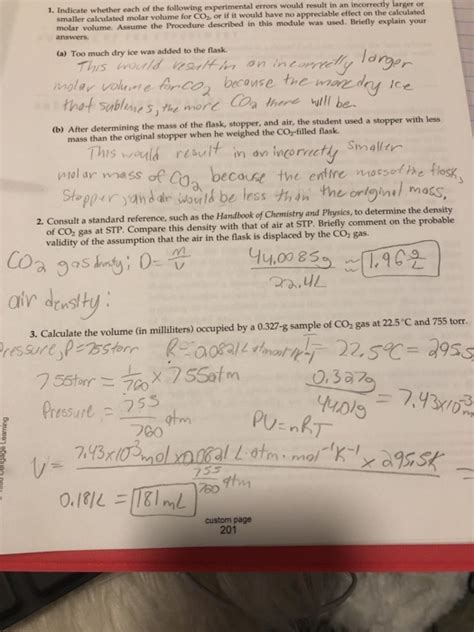 1. Indicate whether each of the following experimental errors would result in an incorrectly larger or
smaller calculated molar volume for CO₂, or if it would have no appreciable effect on the calculated
molar volume. Assume the Procedure described in this module was used. Briefly explain your
answers.
(a) Too much dry ice was added to the flask.
This would result in an incorrectly larger
molar volume for CO₂ because the more dry ice
that sublimes, the more CO₂ there will be.
(b) After determining the mass of the flask, stopper, and air, the student used a stopper with less
mass than the original stopper when he weighed the CO₂-filled flask.
This would result in an incorrectly smaller
molar mass of CO₂ because the entire mass of the flask,
stopper, and air would be less than the original mass.
2. Consult a standard reference, such as the Handbook of Chemistry and Physics, to determine the density
of CO₂ gas at STP. Compare this density with that of air at STP. Briefly comment on the probable
validity of the assumption that the air in the flask is displaced by the CO₂ gas.
CO₂ gas density: D= m/V 44.0085g/22.4L ≈ 1.96 g/L
air density:
3. Calculate the volume (in milliliters) occupied by a 0.327-g sample of CO₂ gas at 22.5°C and 755 torr.
Pressure, P=755torr R=0.0821 L·atm T= 22.5°C = 295.5
755torr = 1/760 × 755atm 0.327g/44.01g = 7.43×10⁻³
Pressure = 755/760 atm PV=nRT
V= 7.43×10⁻³mol×0.0821 L·atm·mol⁻¹K⁻¹ × 295.5K / 755/760 atm =
0.181L = 181mL
custom page
201
Cengage Learning